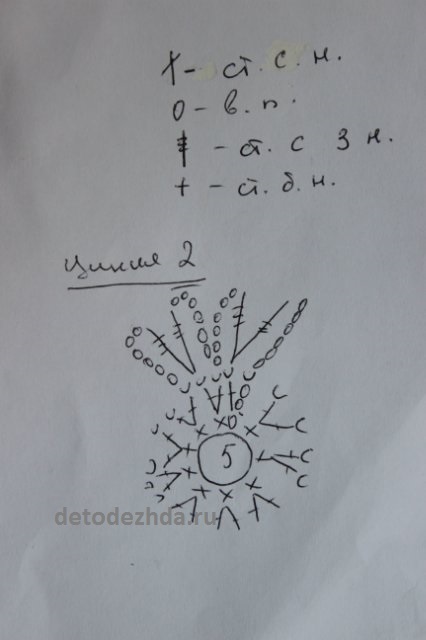 † - ст. с. н.
о - в. п.
ǂ - ст. с 3 н.
+ - ст. б. н.
2
5
detodezhda.ru